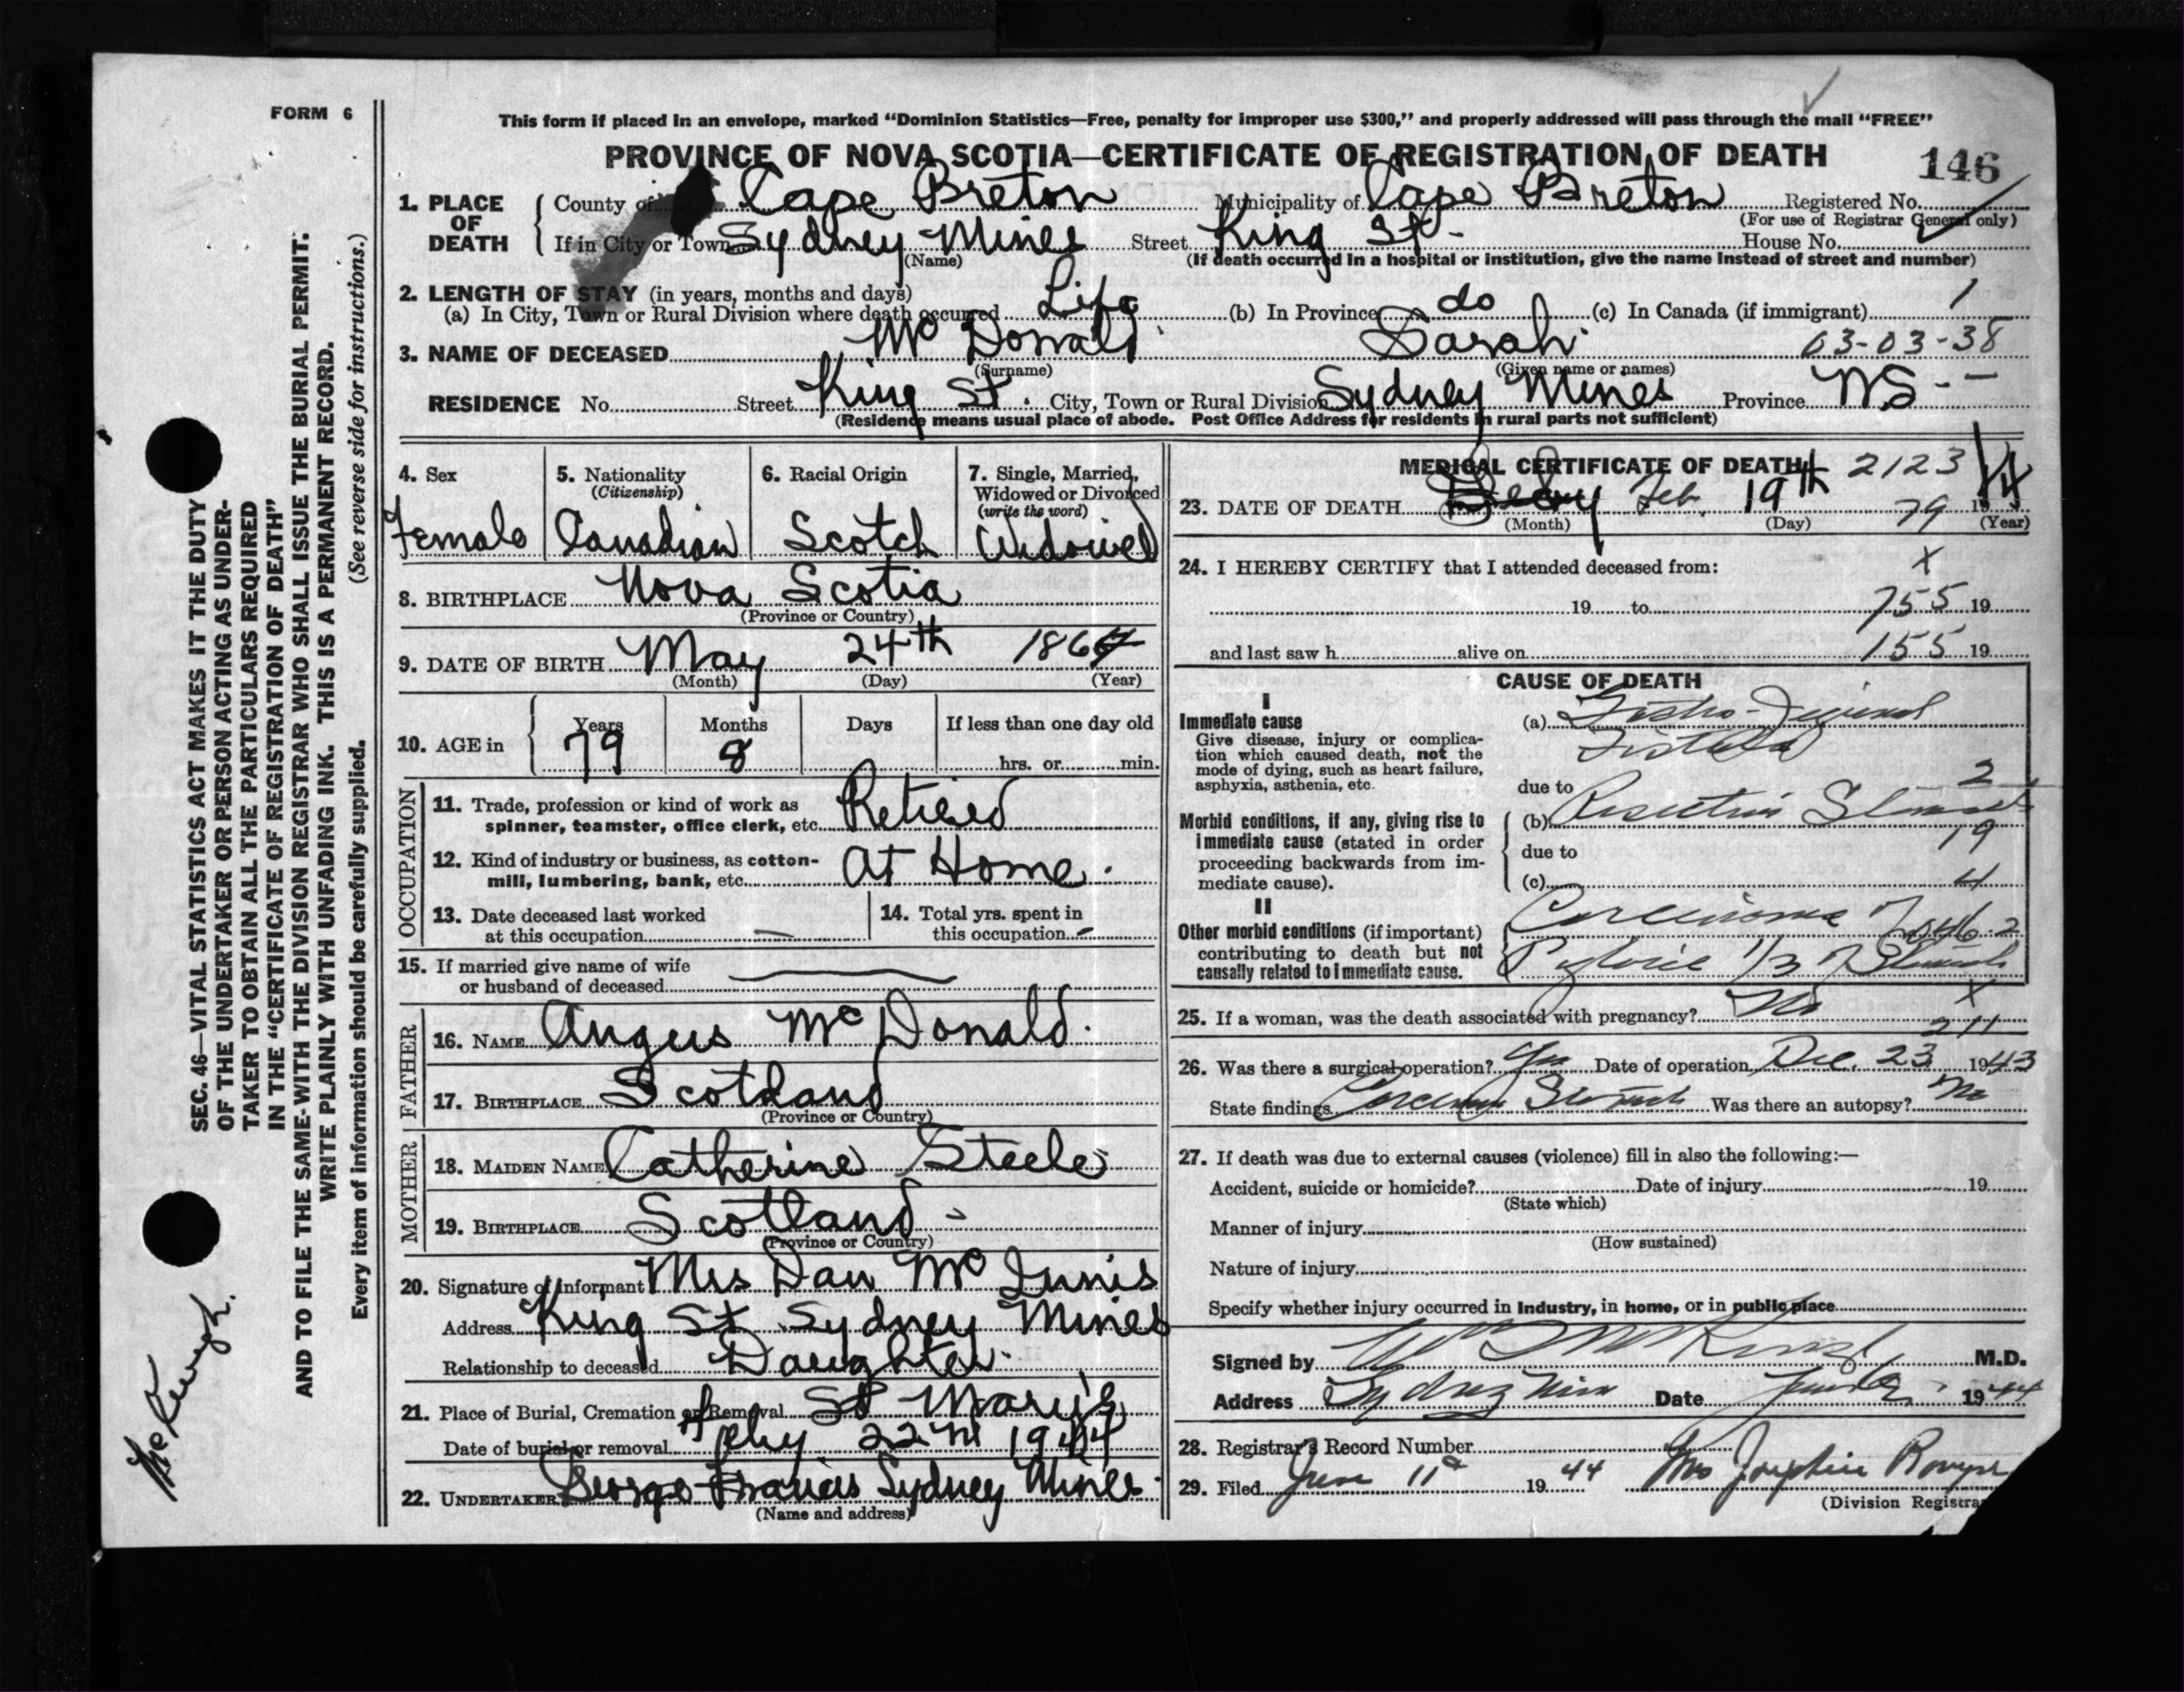 FORM 6
This form if placed in an envelope, marked "Dominion Statistics—Free, penalty for improper use $300," and properly addressed will pass through the mail "FREE"
PROVINCE OF NOVA SCOTIA—CERTIFICATE OF REGISTRATION OF DEATH
146
1. PLACE OF DEATH
County of Cape Breton Municipality of Cape Breton Registered No.
(For use of Registrar General only)
If in City or Town Sydney Mines Street King St. House No.
(Name) (If death occurred in a hospital or institution, give the name instead of street and number)
2. LENGTH OF STAY (in years, months and days)
(a) In City, Town or Rural Division where death occurred Life (b) In Province do (c) In Canada (if immigrant) 1
3. NAME OF DECEASED Mc Donald Sarah 03-03-38
(Surname) (Given name or names)
RESIDENCE No. Street King St. City, Town or Rural Division Sydney Mines Province N.S.
(Residence means usual place of abode. Post Office Address for residents in rural parts not sufficient)
4. Sex Female
5. Nationality (Citizenship) Canadian
6. Racial Origin Scotch
7. Single, Married, Widowed or Divorced (write the word) Widowed
8. BIRTHPLACE Nova Scotia
(Province or Country)
9. DATE OF BIRTH May 24th 1864
(Month) (Day) (Year)
10. AGE in Years 79 Months 8 Days If less than one day old
hrs. or min.
OCCUPATION
11. Trade, profession or kind of work as spinner, teamster, office clerk, etc. Retired
12. Kind of industry or business, as cotton-mill, lumbering, bank, etc. At Home.
13. Date deceased last worked at this occupation —
14. Total yrs. spent in this occupation -
15. If married give name of wife or husband of deceased
FATHER
16. NAME Angus Mc Donald.
17. BIRTHPLACE Scotland
(Province or Country)
MOTHER
18. MAIDEN NAME Catherine Steele
19. BIRTHPLACE Scotland
(Province or Country)
20. Signature of Informant Mrs Dan Mc Innis
Address King St Sydney Mines
Relationship to deceased Daughter
21. Place of Burial, Cremation or Removal St Mary's
Date of burial or removal Feby 22nd 1944
22. UNDERTAKER George Francis Sydney Mines
(Name and address)
MEDICAL CERTIFICATE OF DEATH 2123
23. DATE OF DEATH Feb. 19th 79 1944
(Month) (Day) (Year)
24. I HEREBY CERTIFY that I attended deceased from: x
19 to 755 19
and last saw h alive on 155 19
CAUSE OF DEATH
I
Immediate cause
Give disease, injury or complication which caused death, not the mode of dying, such as heart failure, asphyxia, asthenia, etc.
(a) Gastro-Jejunal
Fistula
due to 2
Morbid conditions, if any, giving rise to immediate cause (stated in order proceeding backwards from immediate cause).
(b) Resection Stomach
due to 19
(c) 4
II
Other morbid conditions (if important) contributing to death but not causally related to immediate cause.
Carcinoma of 462
Pyloric 1/3 of Stomach
25. If a woman, was the death associated with pregnancy? No x
211
26. Was there a surgical operation? Yes Date of operation Dec. 23 1943
State findings Carcinoma Stomach Was there an autopsy? No
27. If death was due to external causes (violence) fill in also the following:—
Accident, suicide or homicide? Date of injury 19
(State which)
Manner of injury
(How sustained)
Nature of injury
Specify whether injury occurred in industry, in home, or in public place
Signed by M.D.
Address Sydney Mines Date June 1944
28. Registrar's Record Number
29. Filed June 11 1944 Mrs Josephine
(Division Registrar
SEC. 46—VITAL STATISTICS ACT MAKES IT THE DUTY
OF THE UNDERTAKER OR PERSON ACTING AS UNDER-
TAKER TO OBTAIN ALL THE PARTICULARS REQUIRED
IN THE "CERTIFICATE OF REGISTRATION OF DEATH"
AND TO FILE THE SAME WITH THE DIVISION REGISTRAR WHO SHALL ISSUE THE BURIAL PERMIT.
WRITE PLAINLY WITH UNFADING INK. THIS IS A PERMANENT RECORD.
Every item of information should be carefully supplied. (See reverse side for instructions.)